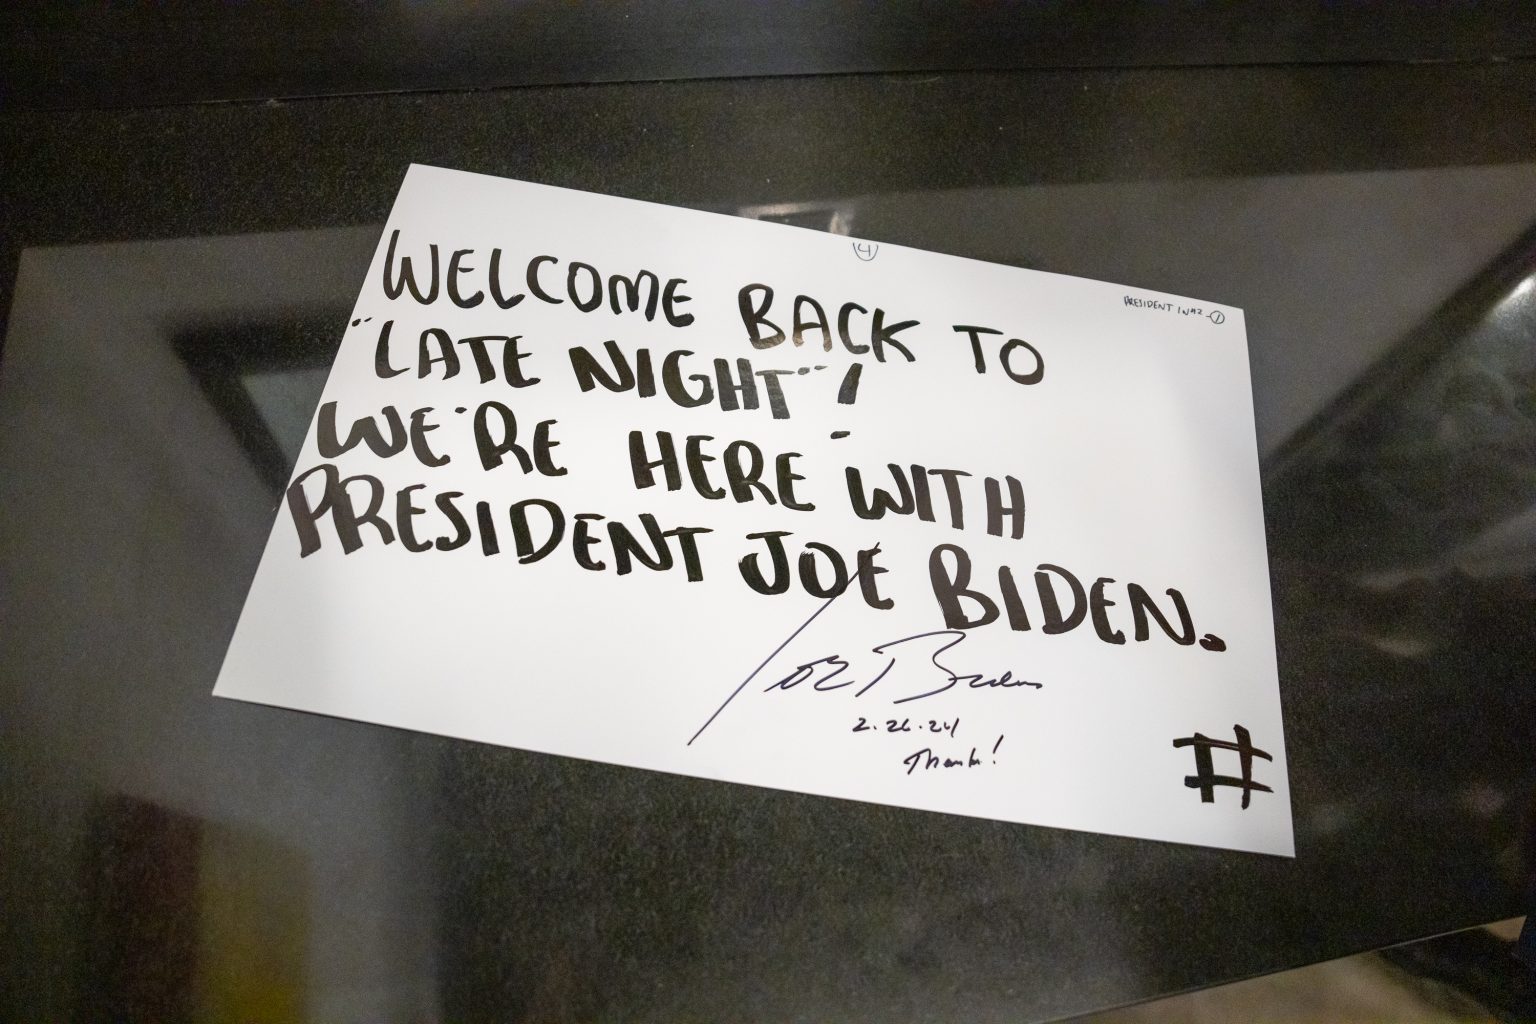 4
PRESIDENT IN #2 - 1
WELCOME BACK TO
"LATE NIGHT"!
WE'RE HERE WITH
PRESIDENT JOE BIDEN.
Joe Biden
2.26.24
Thanks!
#